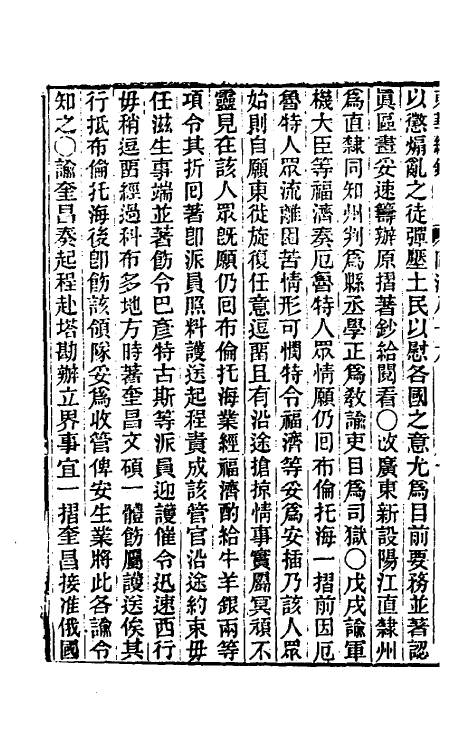 以懲煽亂之徒彈壓土民以慰各國之意尤爲目前要務並著認
眞區畫妥速籌辦原摺著鈔給閱看〇改廣東新設陽江直隸州
爲直隸同知州判爲縣丞學正爲敎諭吏目爲司獄〇戊戌諭軍
機大臣等福濟奏厄魯特人眾情願仍回布倫托海一摺前因厄
魯特人眾流離困苦情形可憫特令福濟等妥爲安插乃該人眾
始則自願東徙旋復任意逗遛且有沿途搶掠情事實屬冥頑不
靈見在該人眾旣願仍回布倫托海業經福濟酌給牛羊銀兩等
項令其折回著卽派員照料護送起程責成該管官沿途約束毋
任滋生事端並著飭令巴彥特古斯等派員迎護催令迅速西行
毋稍逗遛經過科布多地方時著奎昌文碩一體飭屬護送俟其
行抵布倫托海後卽飭該領隊妥爲收管俾安生業將此各諭令
知之〇諭奎昌奏起程赴塔勘辦立界事宜一摺奎昌接准俄國